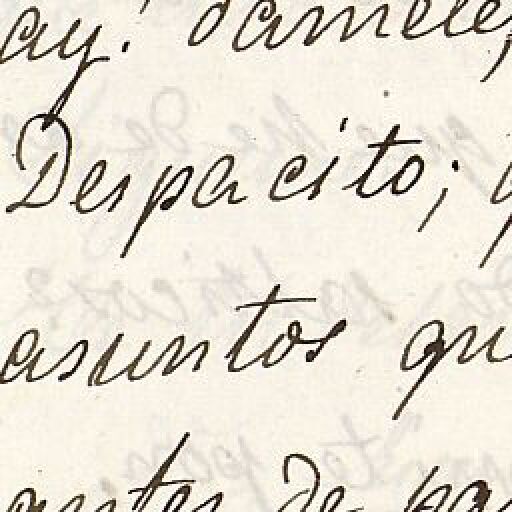 ay! damele,
Despacito;
asuntos qu
antes de pa